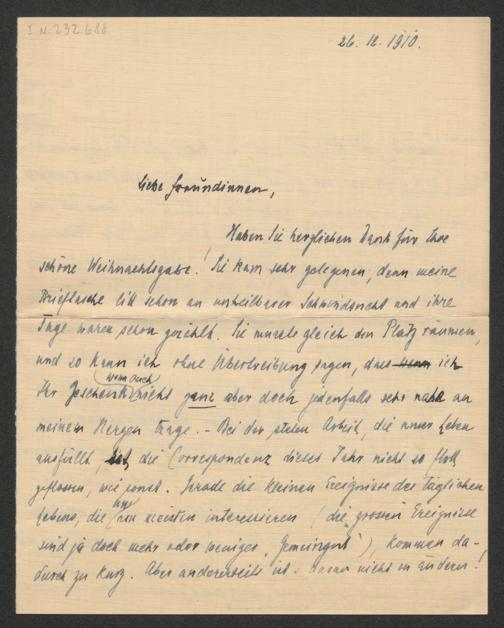 I.N. 232.688
26. 12. 1910.
Liebe Freundinnen,
Haben Sie herzlichen Dank für Ihre
schöne Weihnachtsgabe! Sie kam sehr gelegenen, denn meine
Brieftasche litt schon an unheilbarer Schwindsucht und ihre
Tage waren schon gezählt. Sie musste gleich den Platz räumen,
und so kann ich ohne Übertreibung sagen, dass wenn ich
Ihr Geschenk (wenn auch) nicht ganz aber doch jedenfalls sehr nahe an
meinem Herzen trage. – Bei der steten Arbeit, die unser Leben
ausfüllt, ist die Correspondenz dieses Jahr nicht so flott
geflossen, wie sonst. Gerade die kleinen Ereignisse des täglichen
Lebens, die uns am meisten interessieren (die grossen Ereignisse
sind ja doch mehr oder weniger „Gemeingut"), kommen da-
durch zu kurz. Aber andererseits ist daran nicht zu ändern!